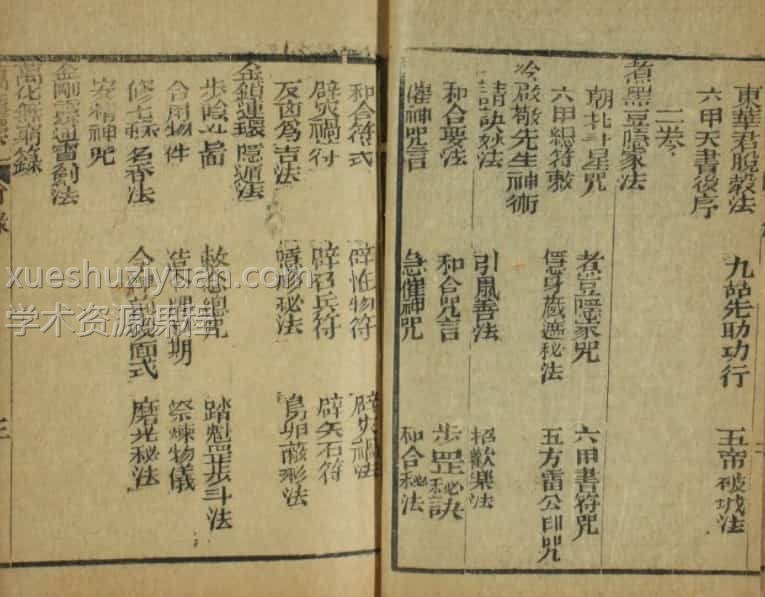 東華君脫殼法 九姑先助功行 五帝破城法
六甲天書後序
二卷
煮黑豆隱家法
朝北斗星咒 煮豆隱家咒 六甲書符咒
六甲總符敕 隱身藏遁秘法 五方雷公印咒
啟敬先生神術
請訣秘法 引風善法 招歡樂法
和合要法 和合咒言 步罡秘訣
催神咒言 急催神咒 和合秘法
和合符式 辟怪物符
辟災禍符 辟刀兵符 辟矢石符
反凶為吉法 隱形秘法 鳥卵蔽形法
金鎖連環隱遁法
步陰斗畐 敕令總咒 踏魁罡步斗法
合用物件 造 期 祭煉物儀
修合 名香法 令牌前後面式 磨光秘法
安精神咒
金剛靈通寶劍法
萬化無窮錄
三
xueshuziyuan.com
学术资源课程